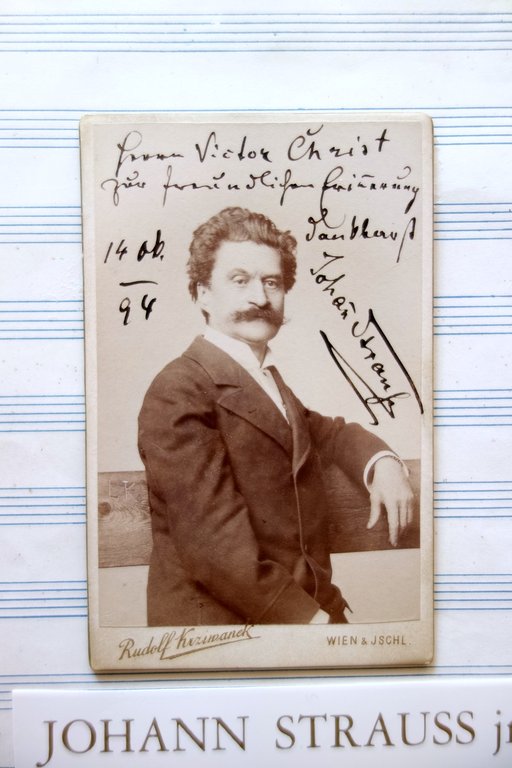 Herrn Victor Christ
zur freundlichen Erinnerung
dankbarst
14 Ok.
94
Johann Strauß
Rudolf Krziwanek
WIEN & JSCHL.
JOHANN STRAUSS jr